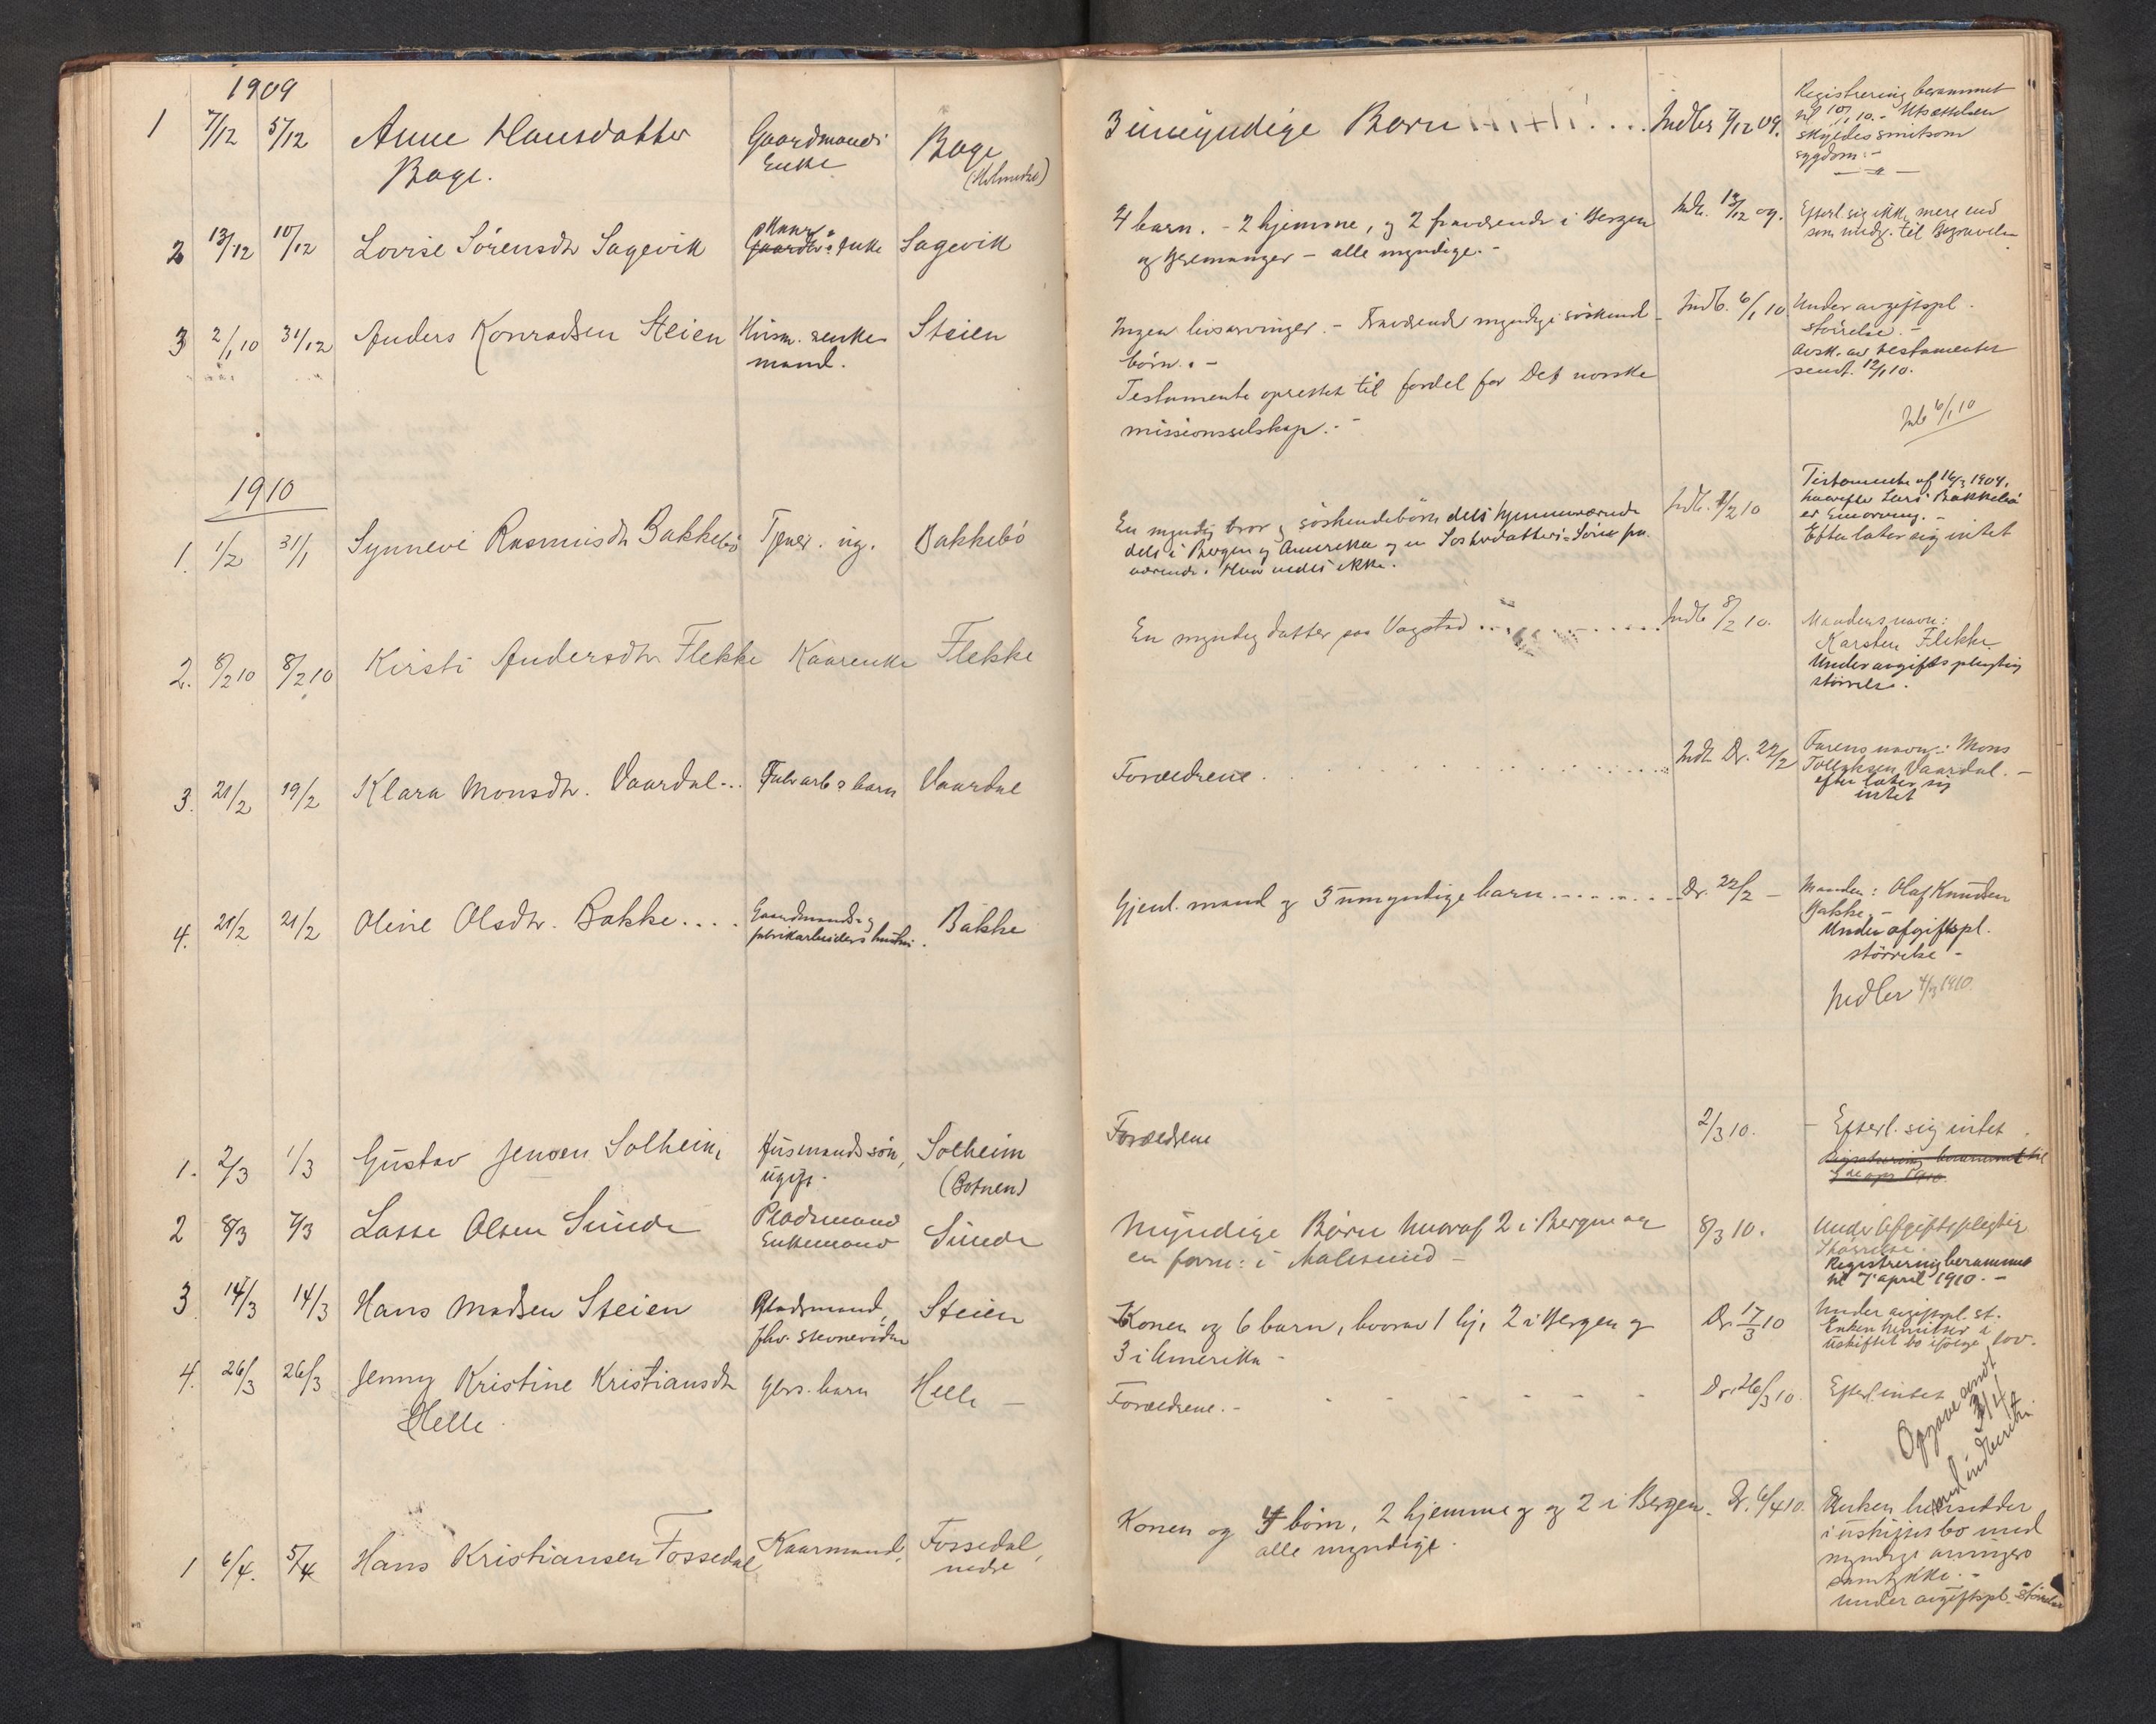 1909
1 7/12 5/12 Anne Hansdatter Gaardmands Bage 3 umyndige Børn .... Indb. 7/12 09. Registrering berammet
Bage. Enke (Holmedal) til 10/1 10. - Utsættelsen
skyldes smitsom
sygdom. -
2 13/12 10/12 Lovise Sørensdtr Sagevik Gaardbr.s Enke Sagevik 4 barn. - 2 hjemme, og 2 fraværende i Bergen Indb. 13/12 09. Efterl. sig ikke mere end
og Bremanger - alle myndige. - som medg. til Begravelsen
3 2/1 10 31/12 Anders Konradsen Steien Husm. enke- Steien Ingen livsarvinger. - Fraværende myndige søskende- Indb. 6/1 10 Under avgiftspl.
mand. børn. - størrelse. -
Testamente oprettet til fordel for Det norske Avsk. av testamentet
missionsselskap. - sendt. 12/1 10.
Indb 6/1 10
1910
1. 1/2 31/1 Synneve Rasmusdtr Bakkebö Tjener. ug. Bakkebö En myndig bror og söskendebörn dels hjemmeværende Indb. 1/2 10 Testamente af 16/3 1904,
dels i Bergen og Amerika og en Sosterdatter fra- hvorefter Lars Bakkebö
værende. Hvor vedes ikke. er Enearving. -
Efterlater sig intet
2. 8/2 10 8/2 10 Kirsti Andersdtr Flekke Kaarenke Flekke En myndig datter paa Vagstad ... Indb 8/2 10. Mandens navn:
Karsten Flekke.
Under avgiftspligtig
størrelse.
3. 21/2 19/2 Klara Monsdtr. Vaardal... Fabr arb s barn Vaardal Forældrene. ... Indb Dr. 22/2 Farens navn: Mons
Tollaksen Vaardal. -
efterlater sig
intet
4. 21/2 21/2 Oline Olsdtr. Bakke.... Gaardmands og Bakke Gjenl. mand og 3 umyndige barn ... Dr. 22/2 - Manden: Olaf Knudsen
fabrikarbeiders hustru. Bakke, -
Under afgiftspl.
størrelse -
Indber 4/3 1910.
1. 2/3 1/3 Gustav Jensen Solheim, Husmandssøn, Solheim Forældrene 2/3 10. - Efterl. sig intet
ugift. (Botnen) Registrering berammet til
2 8/3 7/3 Lasse Olsen Sunde Pladsmand Sunde Myndige Børn hvoraf 2 i Bergen og 8/3 10. Under Afgiftspligtig
Enkemand en form: i Aalesund - Størrelse.
Registrering berammet
til 7 april 1910. -
3 14/3 14/3 Hans Madsen Steien Pladsmand, Steien Konen og 6 barn, hvorav 1 hj, 2 i Bergen og Dr. 17/3 10 Under avgiftspl. st.
fhv. stevnevidne 3 i Amerika - Enken hensitter i
uskiftet bo ifølge lov.
4. 26/3 26/3 Jenny Kristine Kristiansdtr Gbrs. barn Helle - Forældrene. - Dr. 26/3 10. Efterl intet
Helle. Opgave sendt
3/4
med indberetn.
1 6/4. 5/4 Hans Kristiansen Fossedal Kaarmand, Fossedal, Konen og 4 børn, 2 hjemme og og 2 i Bergen. Dr. 6/4 10. Enken hensidder
nedre alle myndige. i uskiftet bo med
myndige arvingers
samtykke. -
under avgiftspl. størrelse